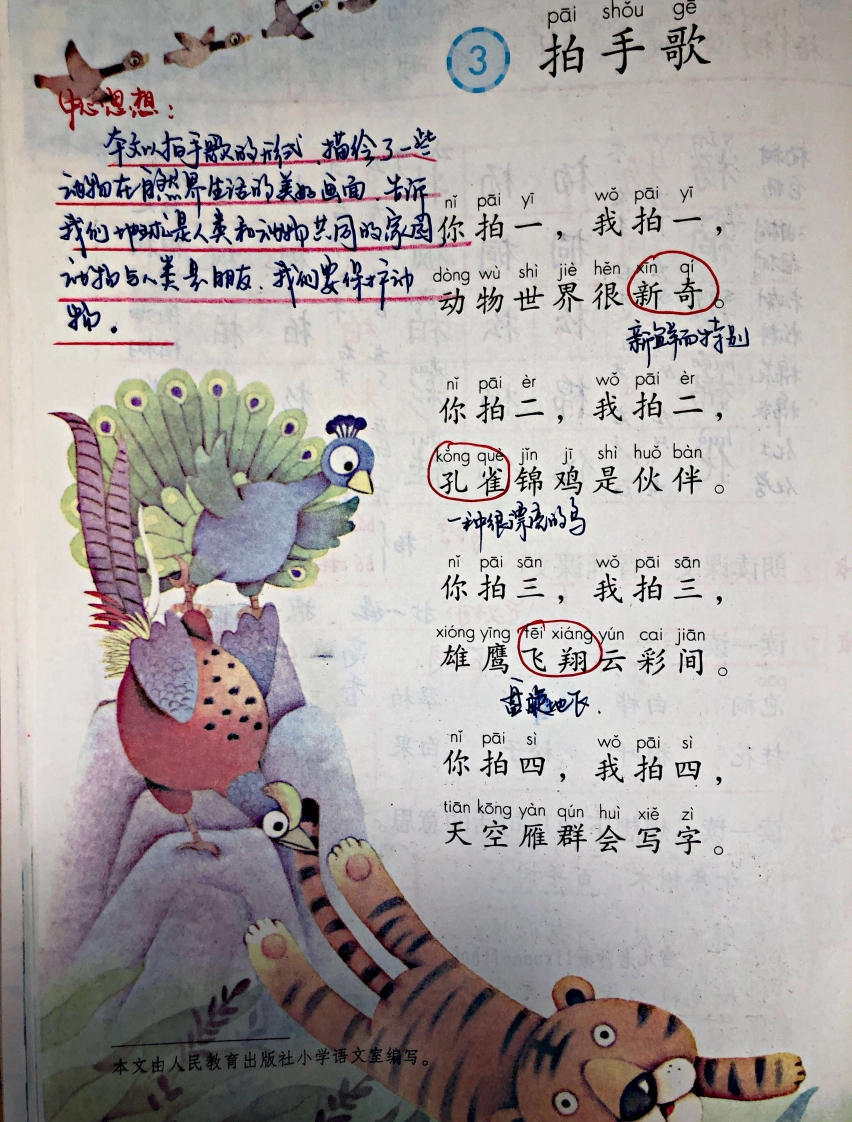 pāi shǒu gē
3 拍手歌
中心思想：
本文以拍手歌的形式，描绘了一些
动物在自然界生活的美好画面，告诉
我们地球是人类和动物共同的家园
动物与人类是朋友，我们要保护动
物。
nǐ pāi yī wǒ pāi yī
你拍一，我拍一，
dòng wù shì jiè hěn xīn qí
动物世界很新奇。
新鲜而特别
nǐ pāi èr wǒ pāi èr
你拍二，我拍二，
kǒng què jǐn jī shì huǒ bàn
孔雀锦鸡是伙伴。
一种很漂亮的鸟
nǐ pāi sān wǒ pāi sān
你拍三，我拍三，
xióng yīng fēi xiáng yún cai jiān
雄鹰飞翔云彩间。
盘旋地飞.
nǐ pāi sì wǒ pāi sì
你拍四，我拍四，
tiān kōng yàn qún huì xiě zì
天空雁群会写字。
本文由人民教育出版社小学语文室编写。